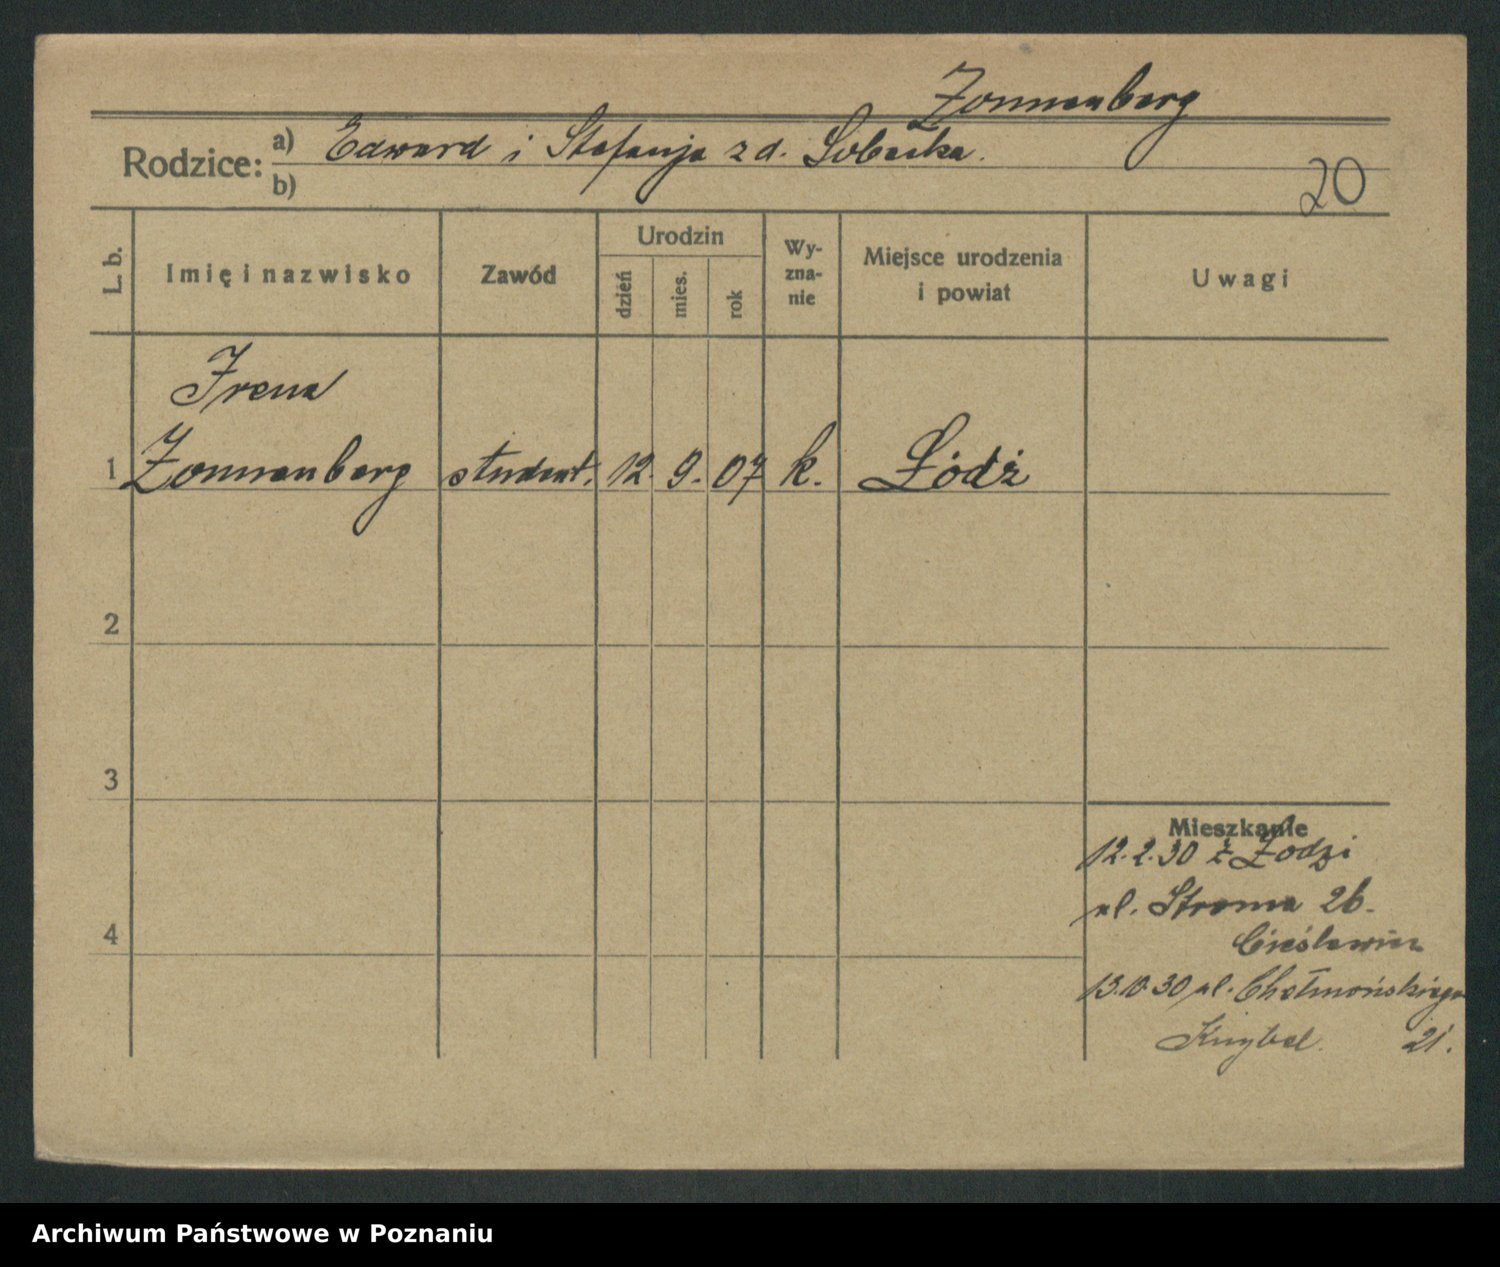 Zonnenberg
Rodzice: a) Edward i Stefanja z d. Sobecka.
b)
20
L. b. Imię i nazwisko Zawód Urodzin dzień mies. rok Wyzna-nie Miejsce urodzenia i powiat Uwagi
Irena
1 Zonnenberg student. 12. 9. 07 k. Łódź
2
3
Mieszkanie
12.2.30 z Łodzi
ul. Stroma 26.
4
Cieślewicz
13.10.30 ul. Chełmońskiego
21.
Archiwum Państwowe w Poznaniu